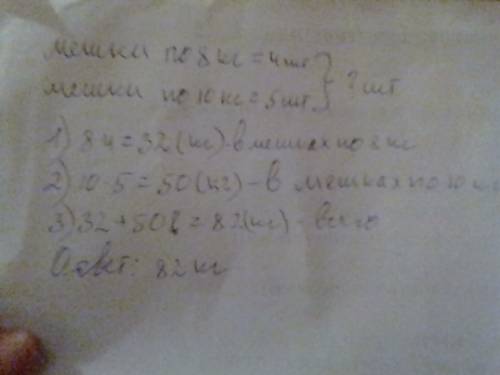 мешки по 8 кг = 4 шт } ? шт
мешки по 10 кг = 5 шт
1) 8·4 = 32 (кг) - в мешках по 8 кг
2) 10·5 = 50 (кг) - в мешках по 10 кг
3) 32 + 50 = 82 (кг) - всего
Ответ: 82 кг